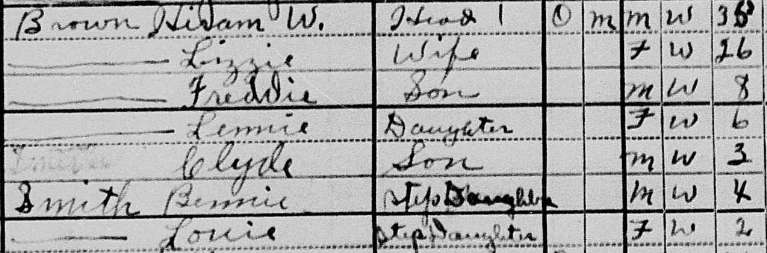 Brown Hiram W. Head 1 O M M W 38
Lizzie Wife F W 26
Freddie Son M W 8
Lennie Daughter F W 6
Clyde Son M W 3
Smith Bennie Step Daughter M W 4
Louie Step Daughter F W 2